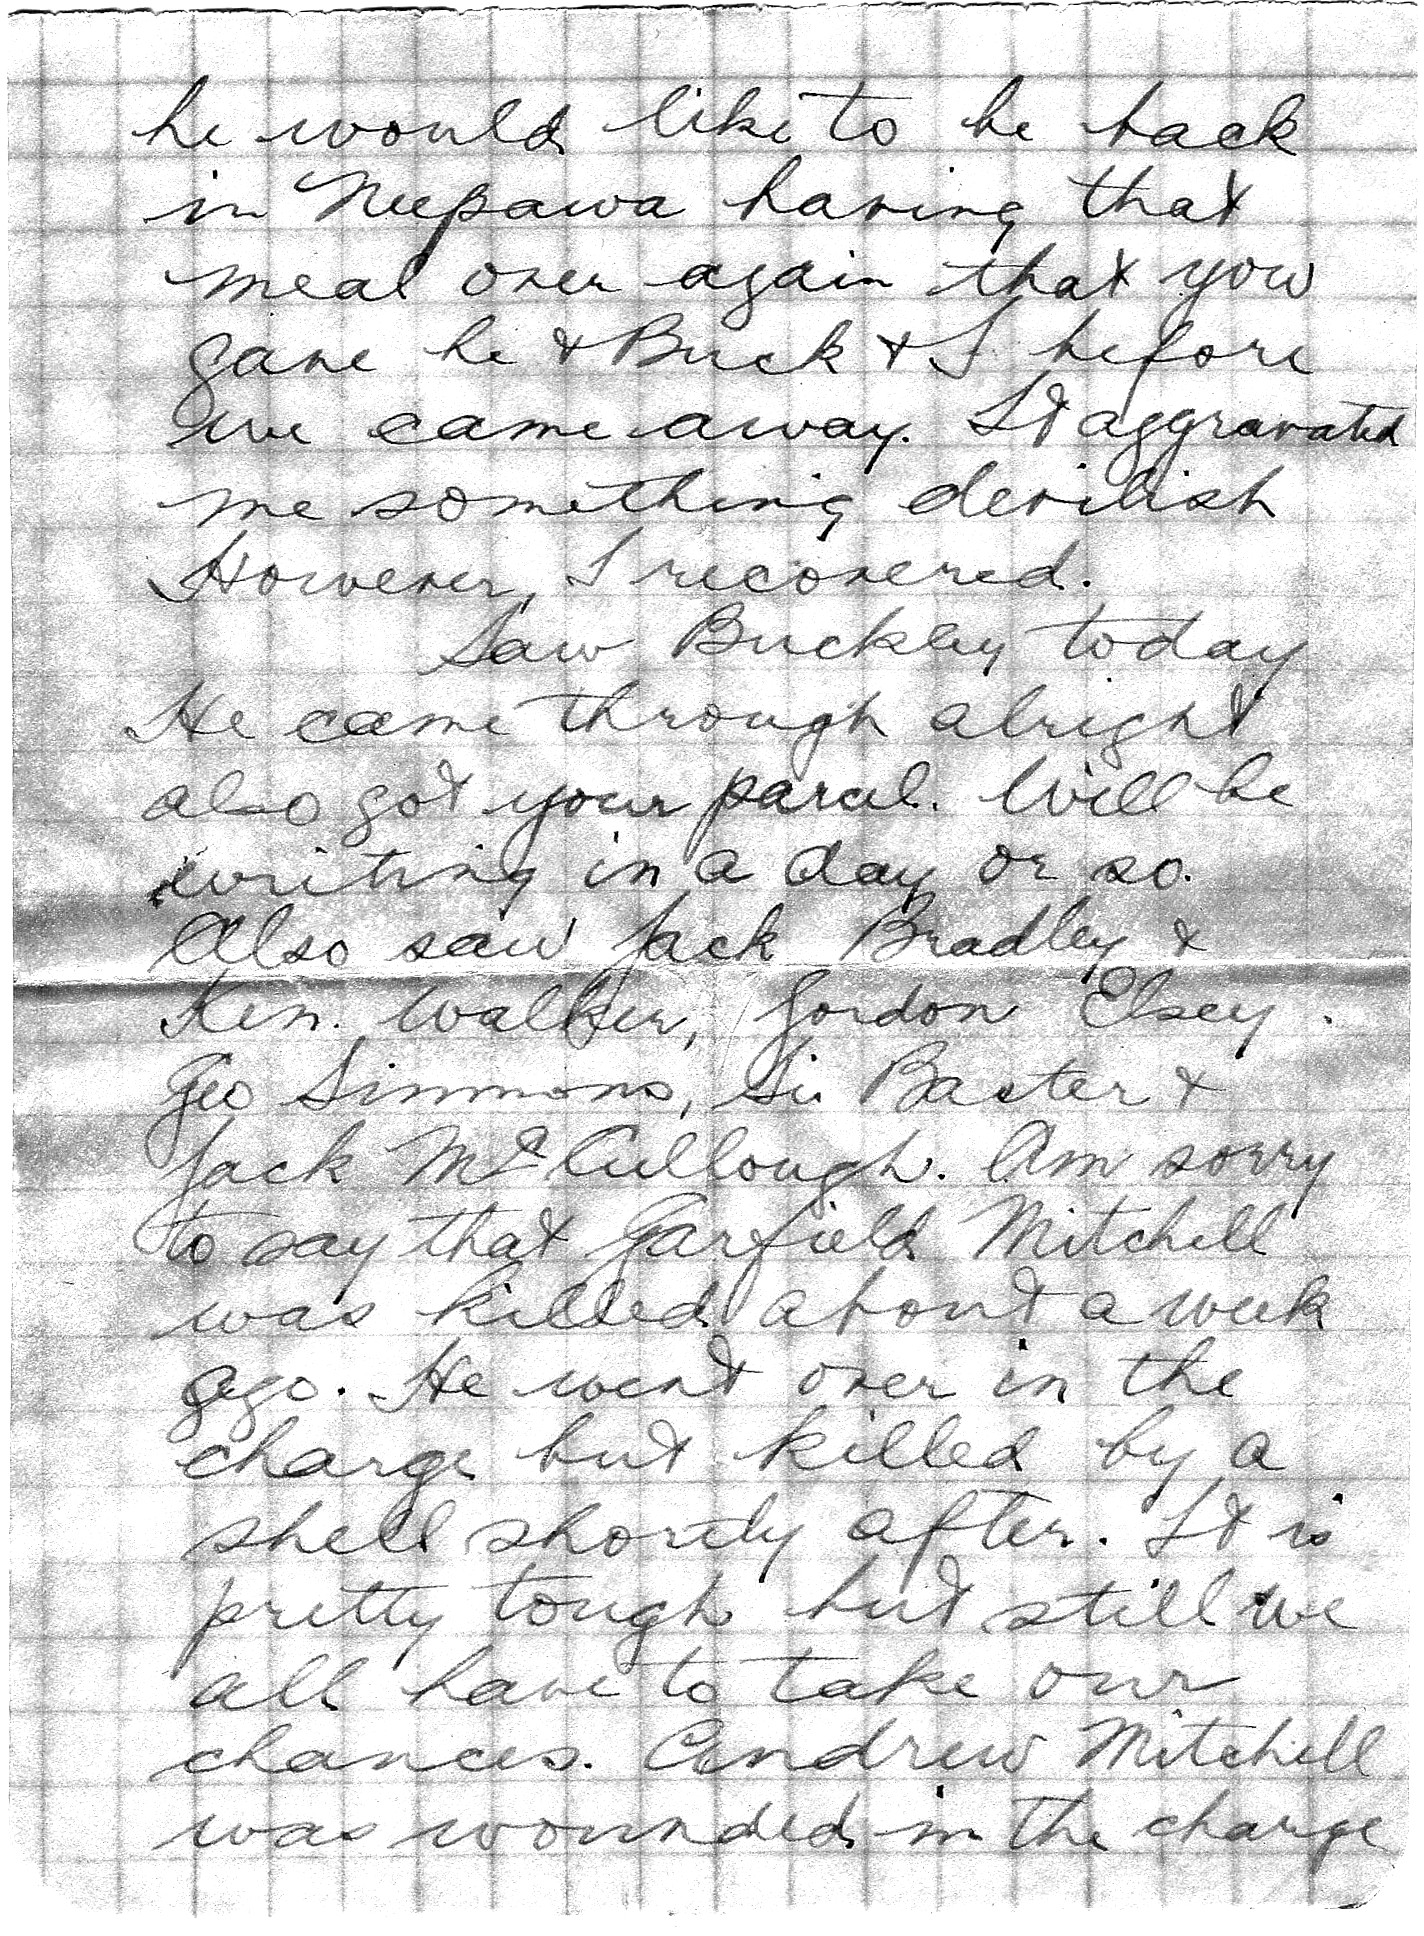 he would like to be back
in Neepawa having that
meal over again that you
gave he & Buck & I before
we came away. It aggravated
me something devilish
However, I recovered.
Saw Buckley today
He came through alright
also got your parcel. Will be
writing in a day or so.
Also saw Jack Bradley &
Ken. Walker, Gordon Elsey.
Geo Simmons, Si. Baxter &
Jack McCullough. Am sorry
to say that Garfield Mitchell
was killed about a week
ago. He went over in the
charge but killed by a
shell shortly after. It is
pretty tough but still we
all have to take our
chances. Andrew Mitchell
was wounded in the charge